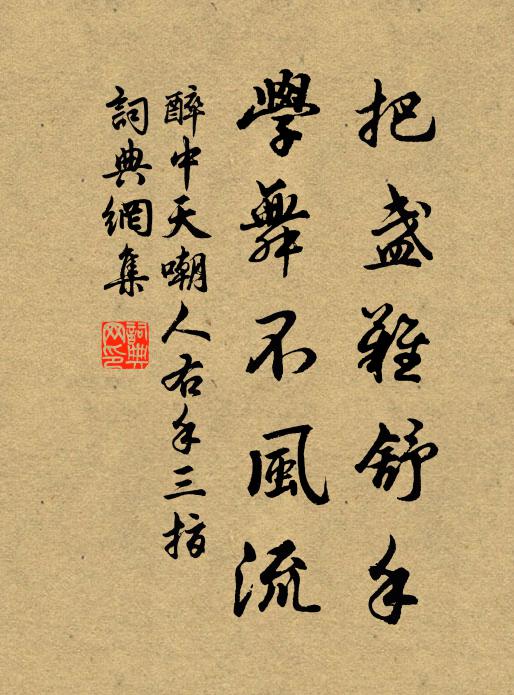 把盞難舒手
學舞不風流
醉中天嘲人右手三指
詞典網集
詞典網印